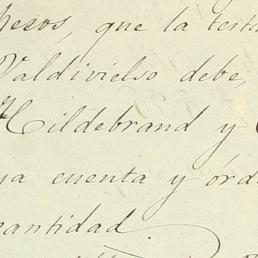 pesos, que la testa
Valdivielso debe,
Hildebrand y C
ya cuenta y órde
cantidad.